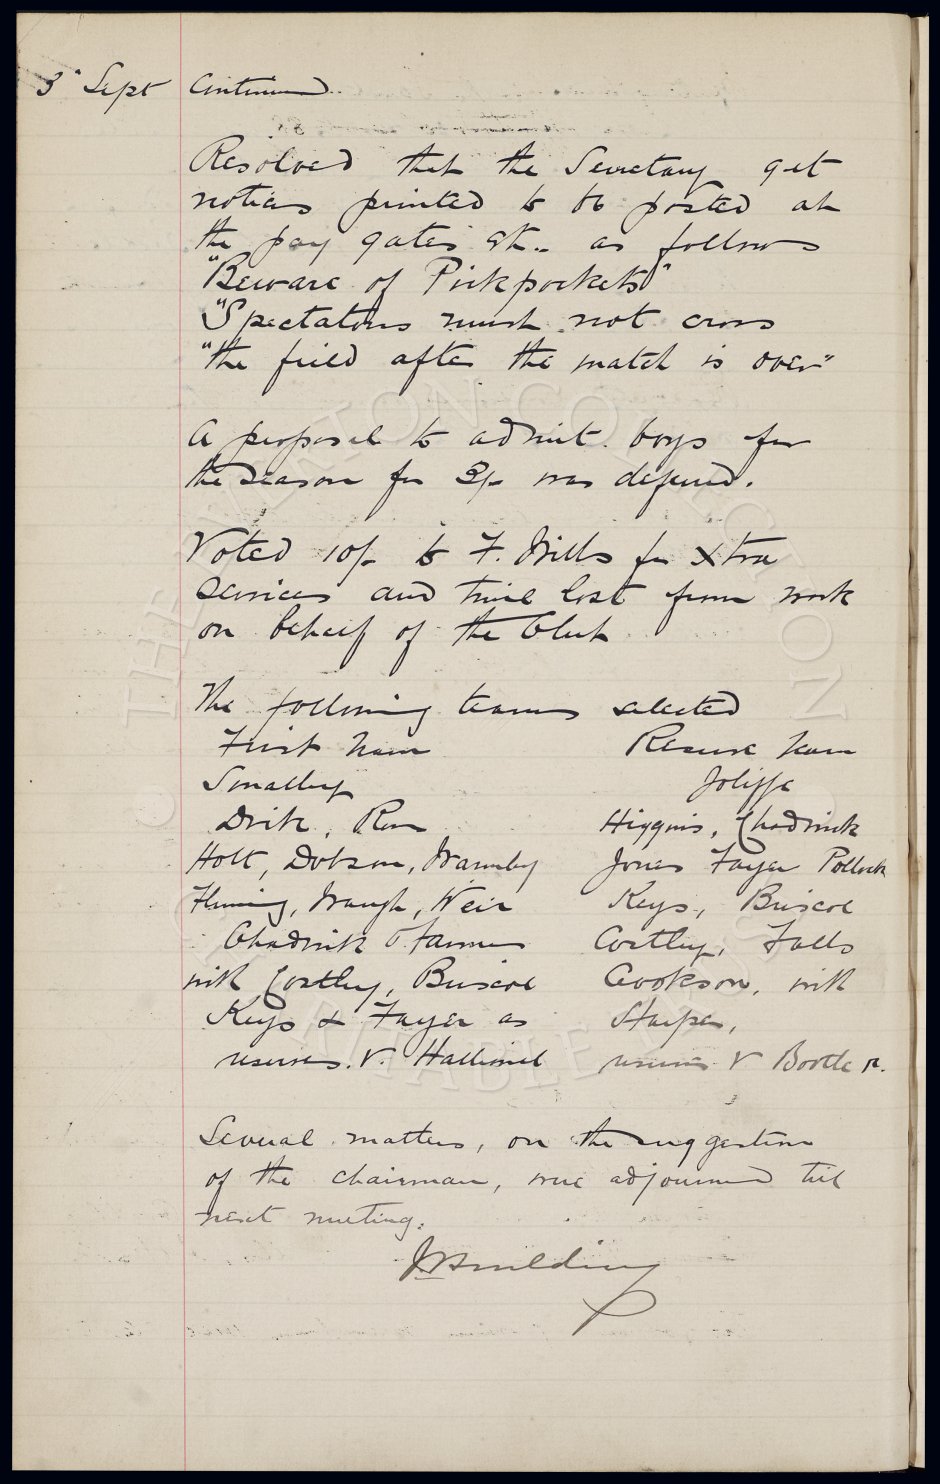 3rd Sept Continued
Resolved that the Secretary get
notices printed to be posted at
the pay gates etc. as follows
"Beware of Pickpockets"
"Spectators must not cross
"the field after the match is over"
A proposal to admit boys for
the season for 3/- was deferred.
Voted 10/- to F. Wills for Xtra
services and time lost from work
on behalf of the Club
The following teams selected
First Team Reserve Team
Smalley Joliffe
Dick, Ross Higgins, Chadwick
Holt, Dobson, Warmby Jones Fayer Pollock
Fleming, Waugh, Weir Keys, Briscoe
Chadwick & Farmer Costley, Falls
with Costley, Briscoe Cookson, with
Keys & Fayer as Sharpe,
reserves. V. Halliwell reserves V Bootle R.
Several matters, on the suggestion
of the chairman, were adjourned till
next meeting.
THE EVERTON COLLECTION
CHARITABLE TRUST